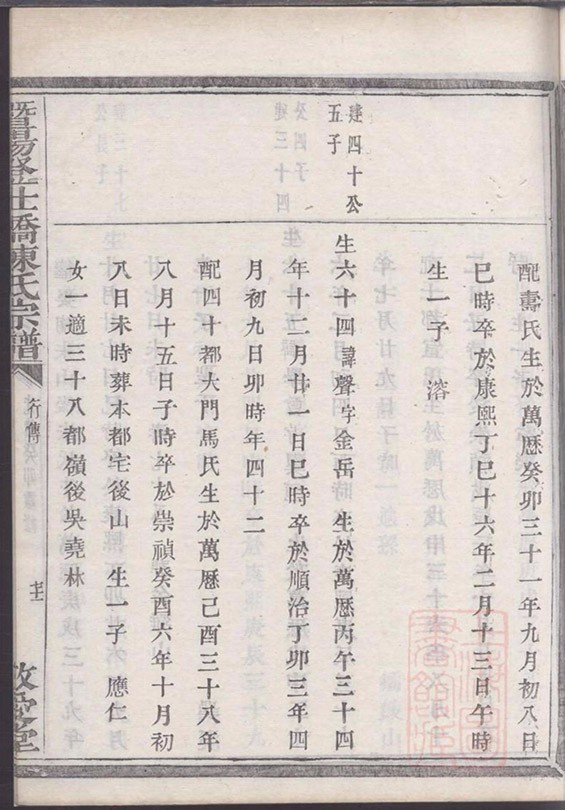 配壽氏生於萬曆癸卯三十一年九月初八日
巳時卒於康熙丁巳十六年二月十三日午時
生一子 溶
建四十公
五子
生六十四 諱聲字金岳 生於萬曆丙午三十四
年十二月廿一日巳時卒於順治丁卯三年四
月初九日卯時年四十二
配四十都大門馬氏生於萬曆己酉三十八年
八月十五日子時卒於崇禎癸酉六年十月初
八日未時葬本都宅後山 生一子 應仁
女一適三十八都嶺後吳堯林
暨陽 仕橋陳氏宗譜
行傳
敬愛堂